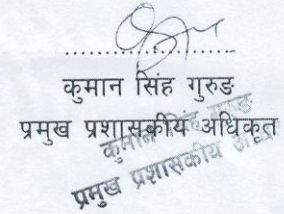 .........................
कुमान सिंह गुरुङ
प्रमुख प्रशासकीय अधिकृत
कुमान सिंह गुरुङ
प्रमुख प्रशासकीय